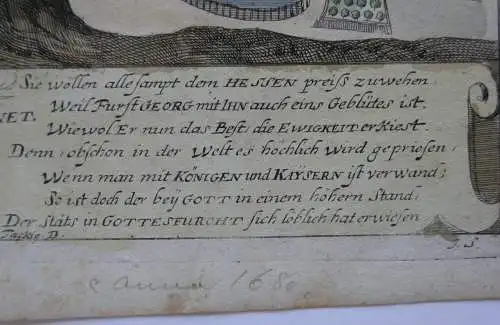 Sie wollen allesampt dem HESSEN preiss zuwehen
Weil Furst GEORG mit IHN auch eins Geblüdes ist.
NET.
Wiewol Er nun das Best, die EWIGKEIT erkiest.
Denn obschon in der Welt es höchlich wird gepriesen
Wenn man mit KÖNIGEN und KAYSERN ist verwand;
So ist doch der beÿ GOTT in einem höhern Stand,
Der stäts in GOTTESFURCHT sich löblich hat erwiesen
Tackje D.
J. S.
anno 1680